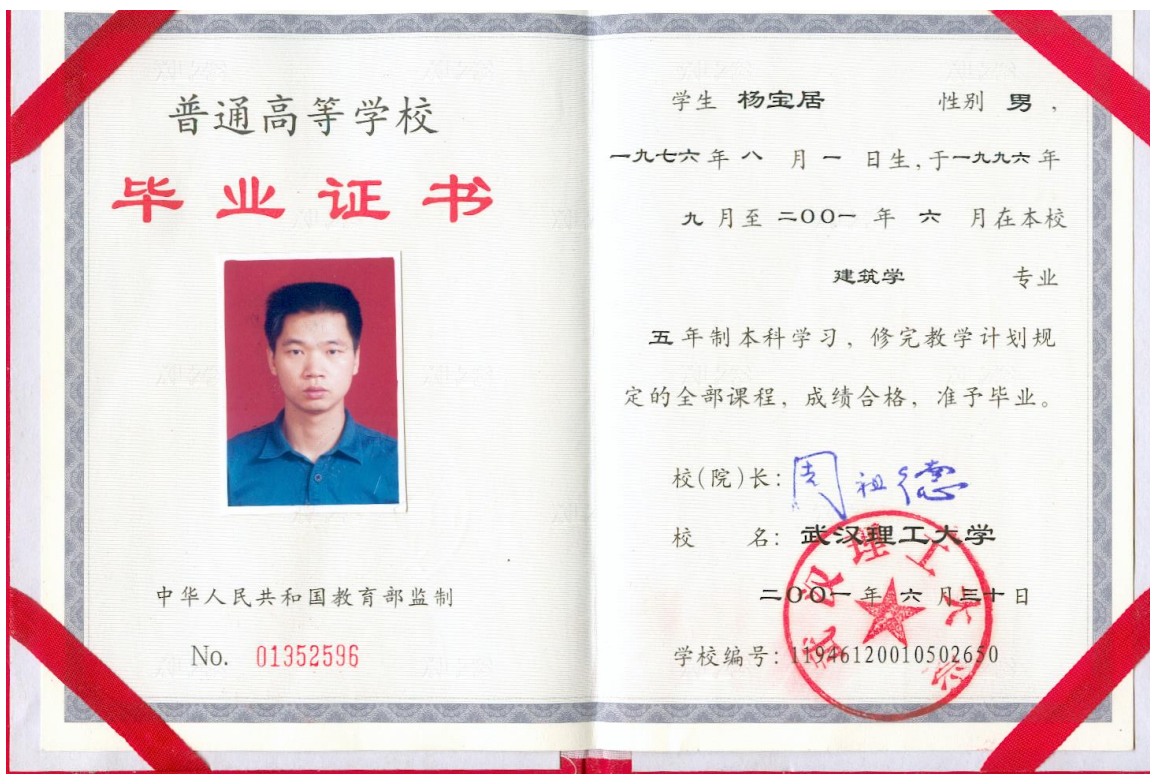 普通高等学校
毕业证书
中华人民共和国教育部监制
No. 01352596
学生 杨宝居 性别 男，
一九七六年 八 月 一 日生，于一九九六年
九 月至 二〇〇一 年 六 月在本校
建筑学 专业
五年制本科学习，修完教学计划规
定的全部课程，成绩合格，准予毕业。
校(院)长：周祖德
校 名：武汉理工大学
二〇〇一年 六 月三十日
学校编号：11946120010502650
武汉理工大学